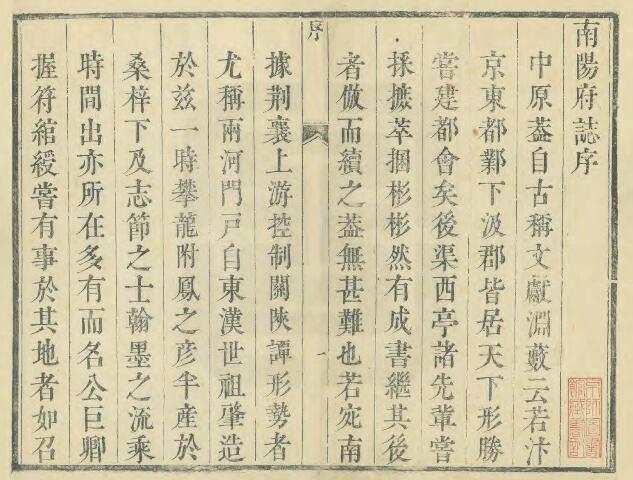 南陽府誌序
中原葢自古稱文獻淵藪云若汴
京東都鄴下汲郡皆居天下形勝
嘗建都會矣後渠西亭諸先輩嘗
採摭萃擱彬彬然有成書繼其後
者倣而續之葢無甚難也若宛南
序
一
據荆襄上游控制關陜譚形勢者
尤稱兩河門戶自東漢世祖肇造
於兹一時攀龍附鳳之彥半產於
桑梓下及志節之士翰墨之流乘
時間出亦所在多有而名公巨卿
握符綰綬嘗有事於其地者如召